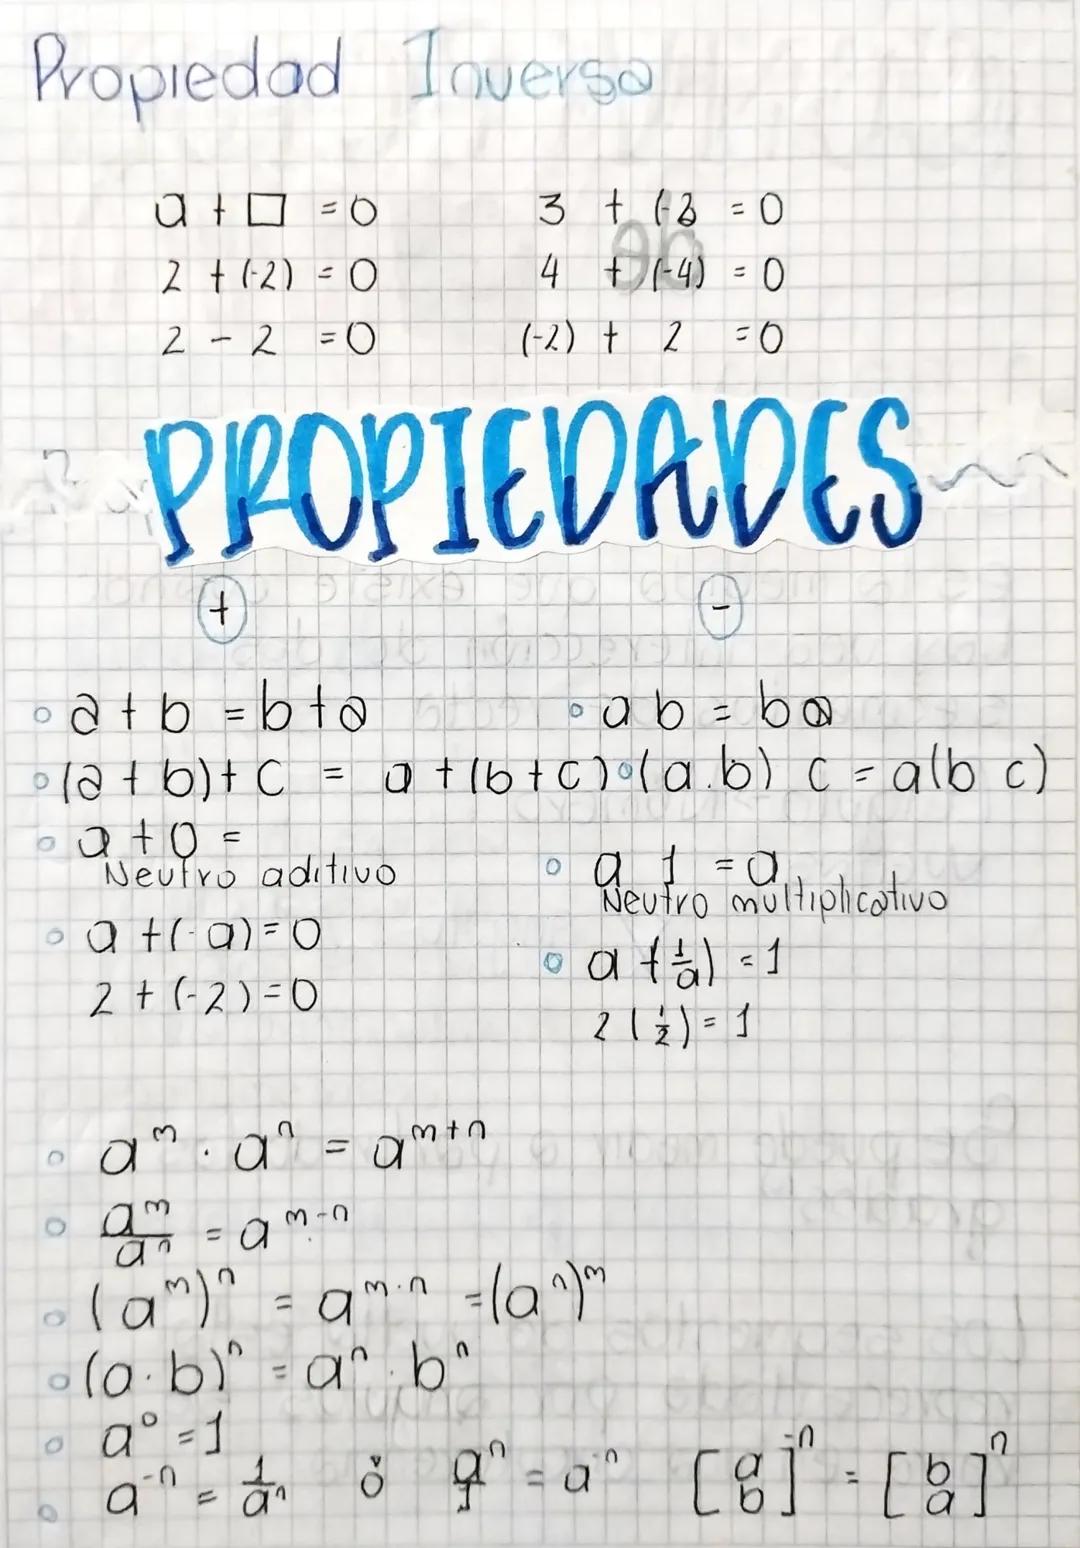 Propiedad Inversa
a + □ = 0
2 + (-2) = 0
2 - 2 = 0
3 + (-3 = 0
4 + (-4) = 0
(-2) + 2 = 0
PROPIEDADES
+
a + b = b + a
(a + b) + c = a + (b + c)
a + 0 =
Neutro aditivo
a + (-a) = 0
2 + (-2) = 0
-
a b = b a
(a.b) c = a(b c)
a 1 = a
Neutro multiplicativo
a + (1/a) = 1
2 (1/2) = 1
a^m · a^n = a^(m+n)
a^m/a^n = a^(m-n)
(a^m)^n = a^(m·n) = (a^n)^m
(a·b)^n = a^n · b^n
a^0 = 1
a^-n = 1/a^n ó a^n/1 = a^n [a/b]^-n = [b/a]^n